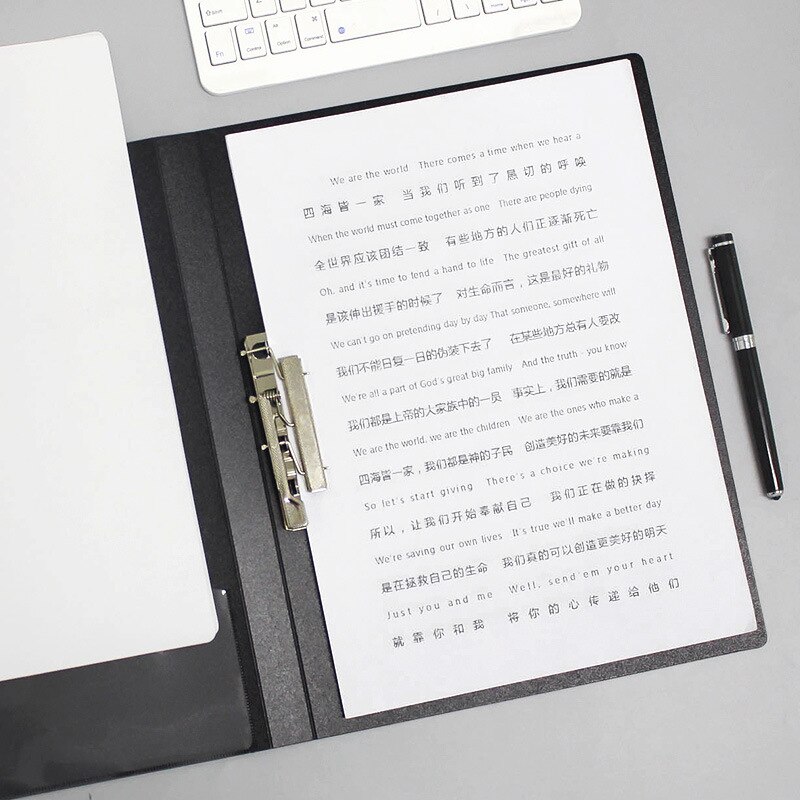 Shift
Fn Control Alt Option Command
We are the world There comes a time when we hear a
四海皆一家 当我们听到了恳切的呼唤
When the world must come together as one There are people dying
全世界应该团结一致 有些地方的人们正逐渐死亡
Oh, and it's time to lend a hand to life The greatest gift of all
是该伸出援手的时候了 对生命而言，这是最好的礼物
We can't go on pretending day by day That someone, somewhere will
我们不能日复一日的伪装下去了 在某些地方总有人要改
We're all a part of God's great big family And the truth - you know
我们都是上帝的大家族中的一员 事实上，我们需要的就是
We are the world, we are the children We are the ones who make a
四海皆一家，我们都是神的子民 创造美好的未来要靠我们
So let's start giving There's a choice we're making
所以，让我们开始奉献自己 我们正在做的抉择
We're saving our own lives It's true we'll make a better day
是在拯救自己的生命 我们真的可以创造更美好的明天
Just you and me Well, send'em your heart
就靠你和我 将你的心传递给他们